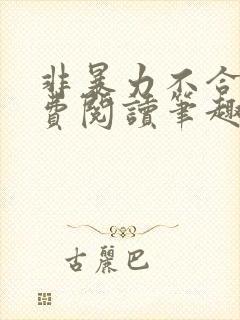 非暴力不合
費閱讀筆趣
古麗巴